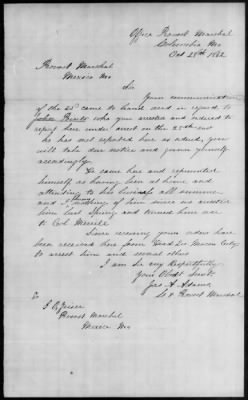 Office Provost Marshal
Columbia Mo
Oct 28th 1862
Provost Marshal
Mexico Mo
Sir
Your communication
of the 23d came to hand and in regard to
John who you arrested and ordered to
report here under arrest on the 25th inst
he has not reported here as ordered, you
will take due notice and govern yourself
accordingly.
He came here and represented
himself as having been at home and
attending to his business all summer
and I nothing of him since we arrested
him last Spring and turned him over
to Col Merrill
Since receiving yours orders have
been received here from Macon City
to arrest him and several others
I am Sir very Respectfully
Your Obdt Servt.
Jas A. Adams,
Provost Marshal
To
Provost Marshal
Mexico Mo